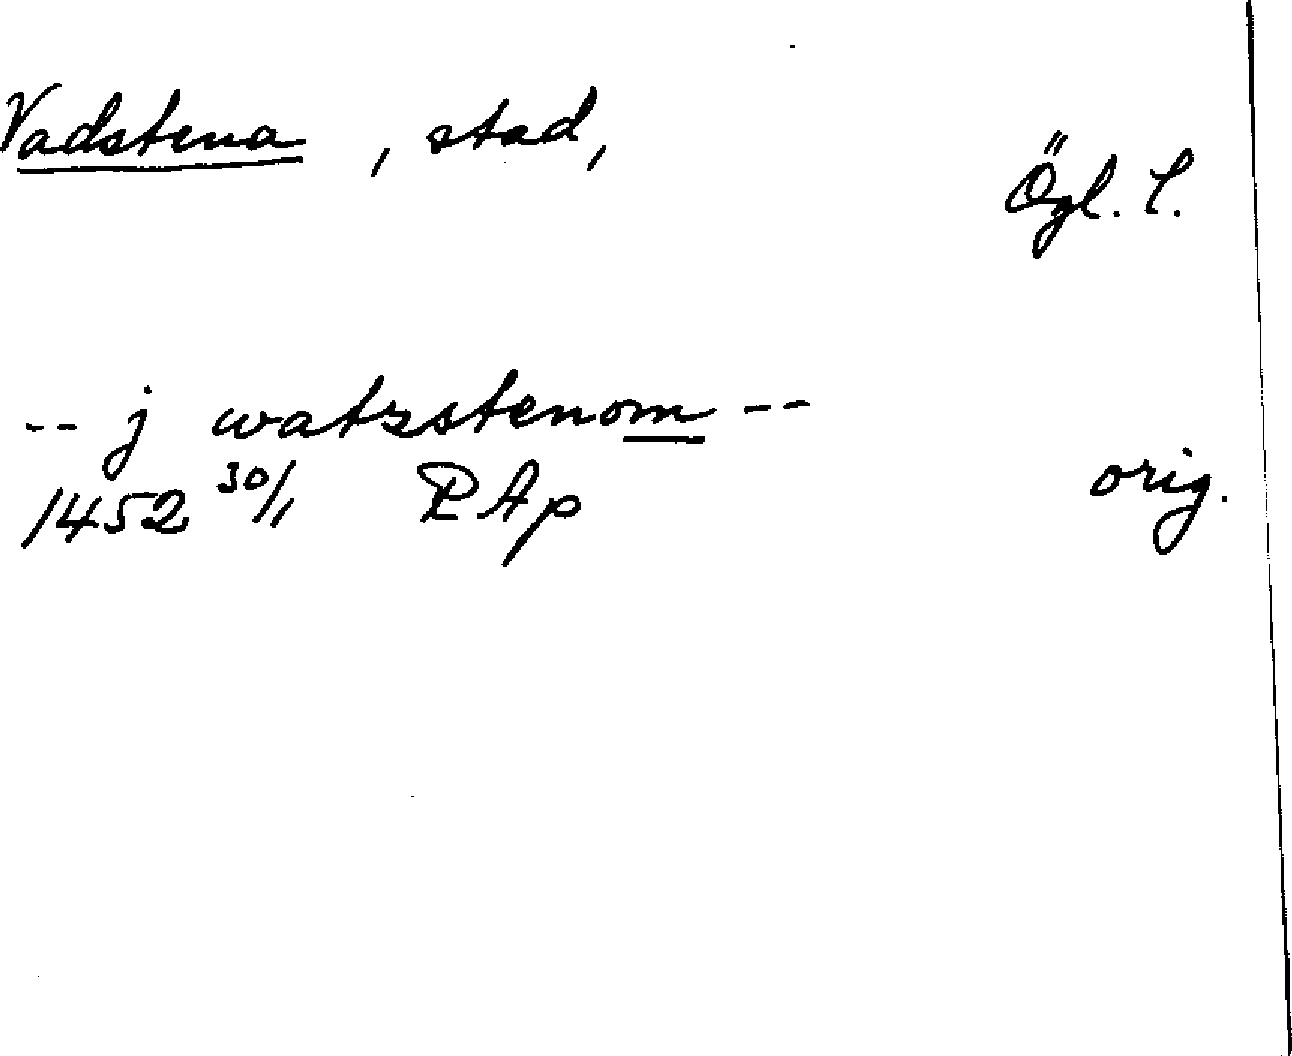 Vadstena, stad,
Ögl. l.
-- j watzstenom --
1452 30/1 RAp
orig.